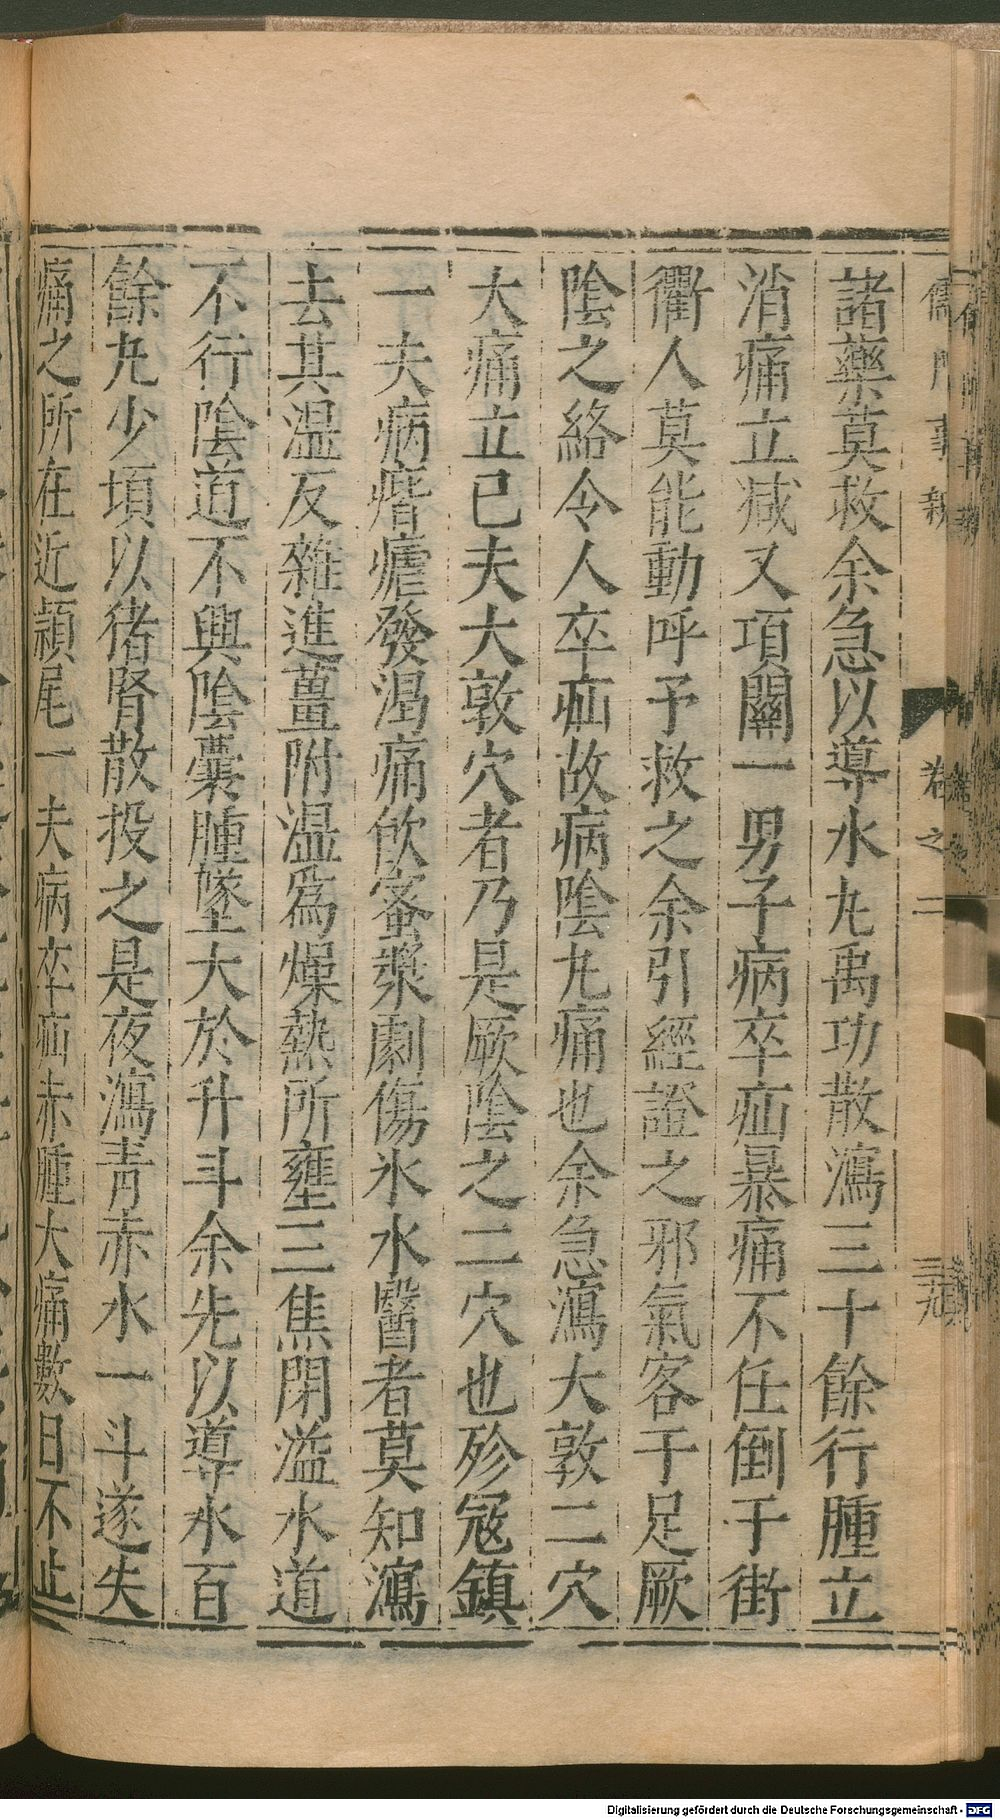 諸藥莫救余急以導水丸禹功散瀉三十餘行腫立
消痛立減又項關一男子病卒疝暴痛不任倒于街
衢人莫能動呼予救之余引經證之邪氣客于足厥
陰之絡令人卒疝故病陰丸痛也余急瀉大敦二穴
大痛立已夫大敦穴者乃是厥陰之二穴也殄寇鎮
一夫病㾬瘧發渴痛飲蜜漿劇傷氷水醫者莫知瀉
去其濕反雜進薑附濕爲燥熱所壅三焦閉溢水道
不行陰道不興陰囊腫墜大於升斗余先以導水百
餘丸少頃以猪腎散投之是夜瀉青赤水一斗遂失
痛之所在近頴尾一夫病卒疝赤腫大痛數日不止
儒門事親
卷之二
三十九
Digitalisierung gefördert durch die Deutsche Forschungsgemeinschaft - DFG